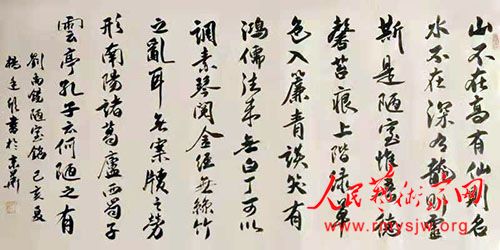 山不在高有仙則名
水不在深有龍則靈
斯是陋室惟吾德
馨苔痕上階綠草
色入簾青談笑有
鴻儒往来無白丁可以
調素琴閱金經無絲竹
之亂耳無案牘之勞
形南陽諸葛廬西蜀子
雲亭孔子云何陋之有
劉禹錫陋室銘己亥夏
書於京華
人民藝術家网
www.rmysjw.com